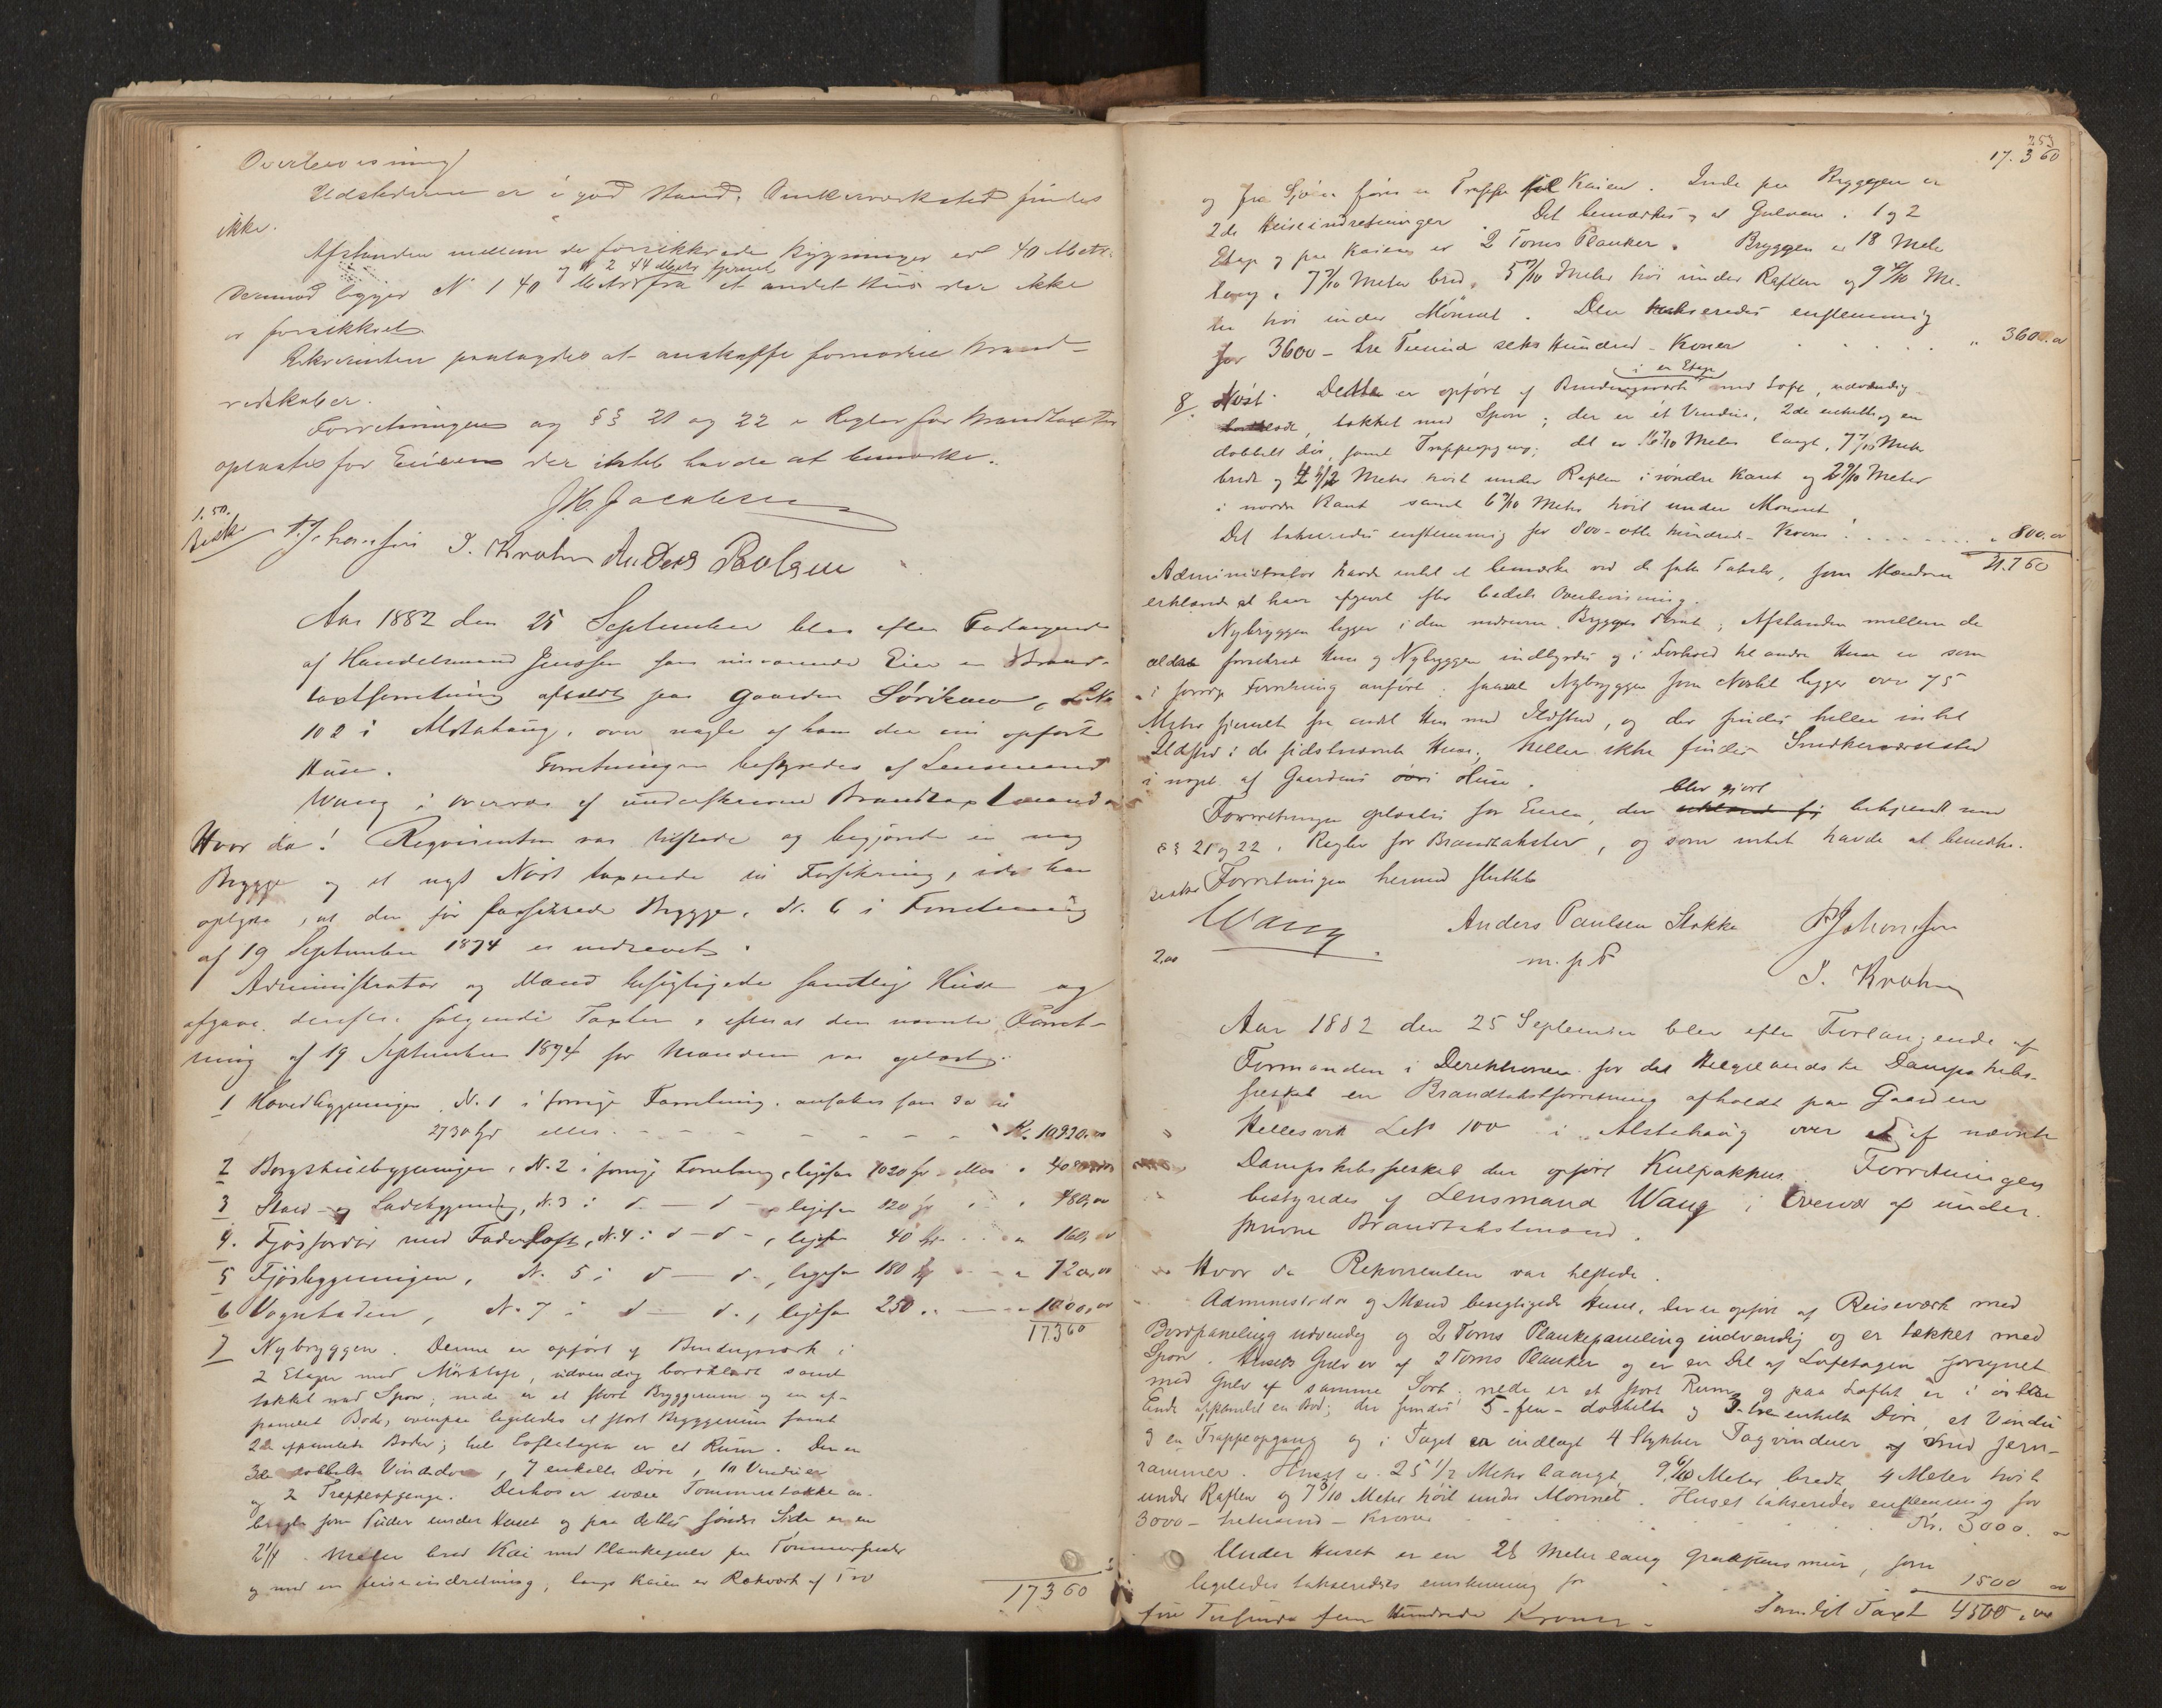 Overbevisning
Ildstederne er i god Stand. Smikerværksted findes
ikke.
Afstanden mellem de forsikkrede Bygninger er 40 Metr.
og N 2 44 Metr fjernet
Dermod ligger N 1 40 Metr fra et andet Hus der ikke
er forsikkret
Rekvirenten paalagdes at anskaffe fornødne Brand-
redskaber.
Forretningen og §§ 21 og 22 i Regler for Brandtaxter
oplæstes for Eieren der intet havde at bemærke.
J H Jacobsen
1.50.
Betalt P. Johansen J. Krohn Anders Poulsen
Aar 1882 den 25 September blev efter Forlangende
af Handelsmand Jenssen som nuværende Eier en Brand-
taxtforretning afholdt paa Gaarden Sörvikeno, L No
102 i Alstahaug, over nogle af ham der nu opførte
Huse. Forretningen bestyredes af Lensmand
Wang i Overvær af underskrevne Brandtaxtmænd
Hvor da! Reqvirenten var tilstede og begjærede en ny
Brygge og et nyt Nøst taxerede til Forsikring, idet han
oplyste, at den før forsikrede Brygge, N. 6 i Forretning
af 19 September 1874 er nedrevet.
Administrator og Mænd besigtigede samtlige Huse og
afgave derefter følgende Taxter, efterat den nævnte Forret-
ning af 19 September 1874 for Mændene var oplæst.
1 Hovedbygningen, N. 1 i forrige Forretning, ansattes som da til
2730 Spd eller - - - - - - Kr. 10920,00
2 Borgstuebygningen, N. 2 i forrige Forretning, ligesaa 1020 Spd eller " 4080,00
3 Stald- og Ladebygning, N. 3 i d. — d — ligesaa 120 Spd " " 480,00
4. Fjøsfordør med Foderloft, N. 4 i d - d -, ligesaa 40 Spd " 160,00
5 Fjøsbygningen, N. 5 i d — d, ligesaa 180 Spd " 720,00
6 Vognboden, N. 7 i d — d., ligesaa 250 .. — " 1000,00
17360
7 Nybryggen. Denne er opført af Bindingsverk i
2 Etager med Mørkloft, udvendig bordklædt samt
takket med Spon; nede er et stort Bryggerum og en af-
panelet Bod, ovenpaa ligeledes et stort Bryggerum samt
2de afpanelede Boder; hele Loftetagen er et Rum. Der er
3de dobbelte Vindedøre, 7 enkelte Døre, 10 Vinduer
og 2 Trappeopgange. Derhos er svære Tømmerstokke an-
bragte som Piller under Huset og paa dettes søndre Side er en
2 1/4 Meter bred Kai med Plankegulv paa Tømmerpeeler
og med en Heiseindretning, langs Kaien er Rekværk af Træ
17360
253
17.360
og fra Sjøen fører en Trappe til Kaien. Inde paa Bryggen er
2de Heiseindretninger Det bemærkes, at Gulvene i 1 og 2
Etage og paa Kaien er 2 Toms Planker. Bryggen er 18 Meter
lang, 7 7/10 Meter bred, 5 7/10 Meter høi under Raften og 9 4/10 Me-
ter høi under Mønnet. Den takseredes enstemmig
for 3600 - tre Tusind seks Hundrede - Kroner . . . . . " 3600.00
i en Etage
8. Nøst. Dette er opført af Bindingsværk med Loft, udvendig
bordklædt, takket med Spon; der er ét Vindue, 2de enkelte og en
dobbelt Dør, samt Trappeopgang; det er 16 7/10 Meter langt, 7 7/10 Meter
bredt og 4 1/2 Meter høit under Raften i søndre Kant og 2 9/10 Meter
i nordre Kant samt 6 7/10 Meter høit under Mønnet
Det takseredes enstemmig for 800 - otte hundrede - Kroner . . . . . " 800.00
21.760
Administrator havde intet at bemærke ved de satte Takster, som Mændene
erklærede at have afgivet efter bedste Overbevisning.
Nybryggen ligger i den nedrevne Brygges Tomt; Afstanden mellem de
ældre forsikrede Huse og Nybryggen indbyrdes og i Forhold til andre Huse er som
i forrige Forretning anført; saavel Nybryggen som Nøstet ligger over 75
Meter fjernet fra andet Hus med Ildsted, og der findes heller intet
Ildsted i de sidstnævnte Huse; heller ikke findes Snedkerværksted
i noget af Gaardens øvri Huse.
blev gjort
Forretningen oplæstes for Eieren, der erklærede sig bekjendt med
§§ 21 og 22 i Regler for Brandtakster, og som intet havde at bemerke.
Forretningen hermed sluttet
Wang Anders Paulsen Stokke PJohansen
2,00 m. p. P J. Krohn
Aar 1882 den 25 September blev efter Forlangende af
Formanden i Derektionen for det Helgelandske Dampskibs-
selskab en Brandtakstforretning afholdt paa Gaarden
Hellesvik LNo 100 i Alstahaug over et af nævnte
Dampskibsselskab der opført Kulpakhus. Forretningen
bestyredes af Lensmand Wang i Overvær af under-
skrevne Brandtakstmænd.
Hvor da Rekvirenten var tilstede.
Administrator og Mænd besigtigede Huset, der er opført af Reiseværk med
Bordpaneling udvendig og 2 Toms Plankepaneling indvendig og er tækket med
Spon. Husets Gulv er af 2 Toms Planker og er en Del af Loftetagen forsynet
med Gulv af samme Sort; nede er et stort Rum og paa Loftet er i østre
Ende afpanelet en Bod; der findes 5 - fem - dobbelte og 3 - tre enkelte Døre, et Vindu
og en Trappeopgang og i Taget er indlagt 4 Stykker Tagvinduer af med Jern-
rammer. Huset er 25 1/2 Meter langt, 9 6/10 Meter bredt, 4 Meter høit
under Raften og 7 5/10 Meter høit under Mønnet. Huset takseredes enstemmig for
3000 - tretusind - Kroner . . . . . Kr. 3000. 00
Under Huset er en 28 Meter lang Graastensmur, som
ligeledes takseredes enstemmig for 1500 00
fire Tusinde fem Hundrede Kroner. - Samlet Taxt 4500,00